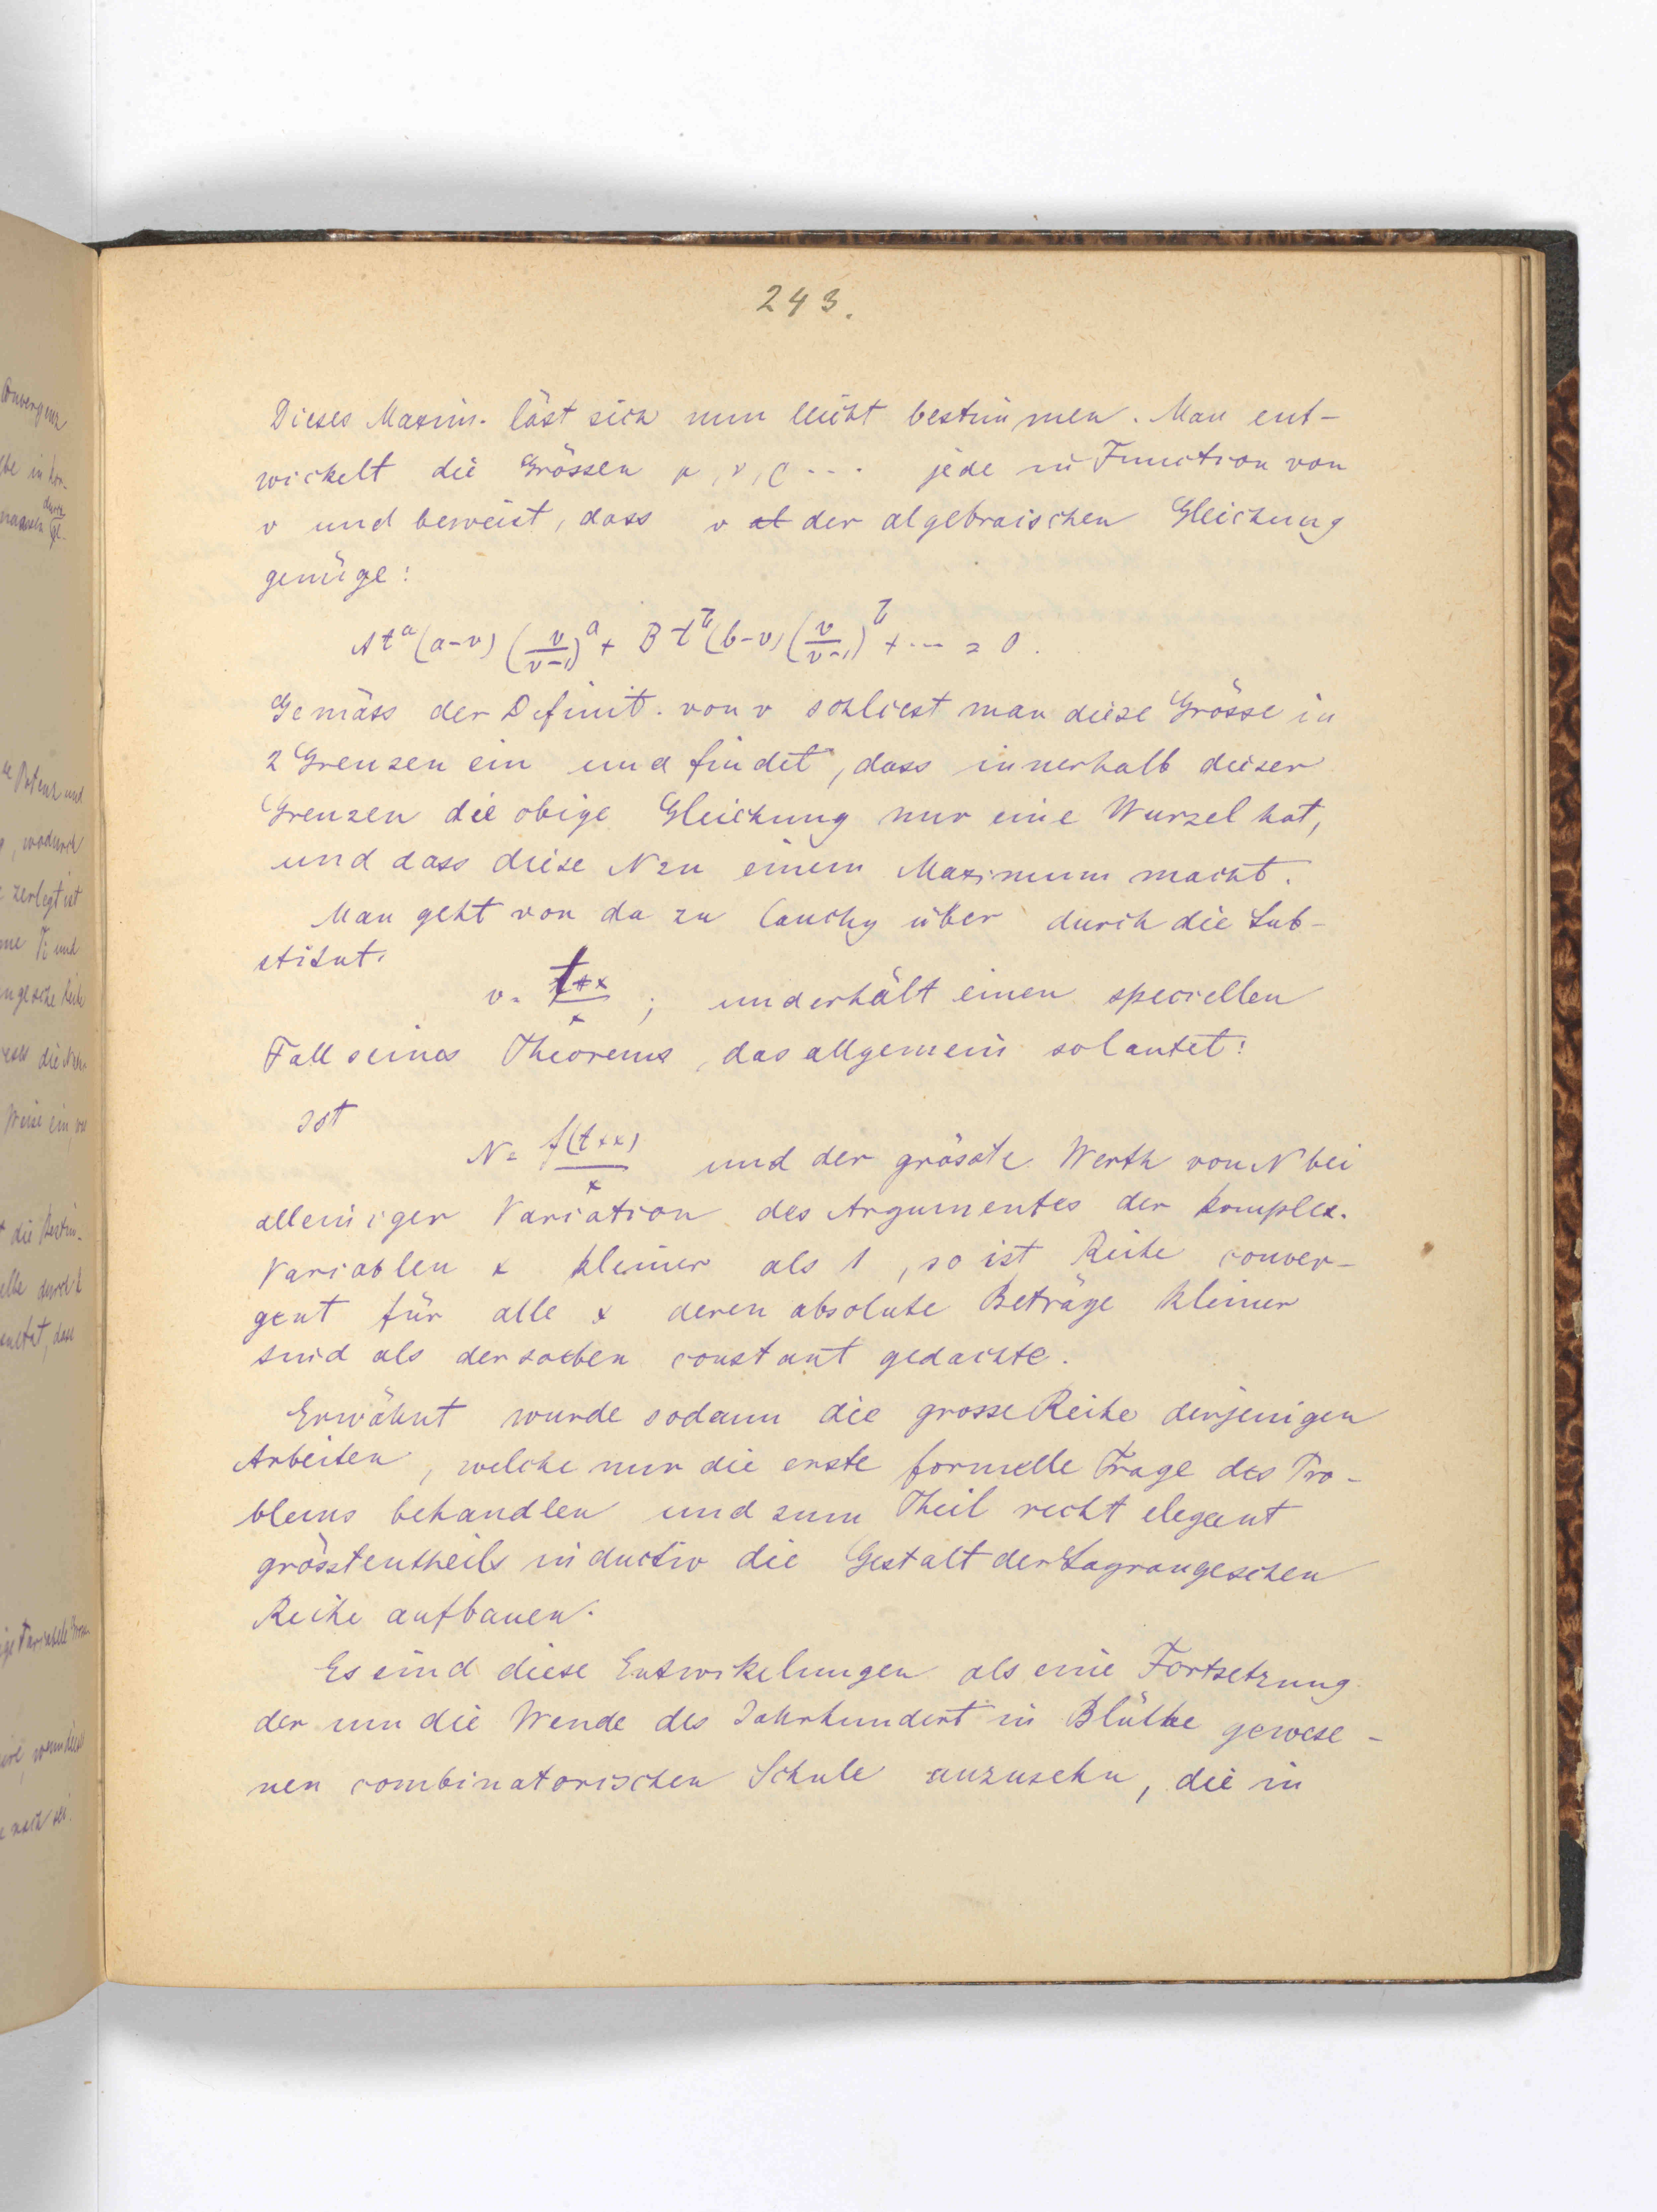 243.
Dieses Maxim. läst sich nun leicht bestimmen. Man ent-
wickelt die Grössen μ, ν, ρ ... jede in Function von
v und beweist, dass v al der algebraischen Gleichung
genüge:
A t^a (a-v) (v/(v-1))^a + B t^b (b-v) (v/(v-1))^b + ... = 0.
Gemäss der Definit. von v schliest man diese Grösse in
2 Grenzen ein und findet, dass innerhalb dieser
Grenzen die obige Gleichung nur eine Wurzel hat,
und dass diese N zu einem Maximum macht.
Man geht von da zu Cauchy über durch die Sub-
stitut.
v = (t+x)/x ; und erhält einen speciellen
Fall seines Theorems, das allgemein so lautet:
Ist
N = f(t+x)/x und der grösste Werth von N bei
alleiniger Variation des Argumentes der komplex.
Variablen x kleiner als 1, so ist Reihe conver-
gent für alle x deren absolute Beträge kleiner
sind als der soeben constant gedachte.
Erwähnt wurde sodann die grosse Reihe derjenigen
Arbeiten, welche nur die erste formelle Frage des Pro-
blems behandlen und zum Theil recht elegant
grösstentheils inductiv die Gestalt der Lagrangeschen
Reihe aufbauen.
Es sind diese Entwikelungen als eine Fortsetzung
der um die Wende des Jahrhundert in Blüthe gewese-
nen combinatorischen Schule anzusehn, die in